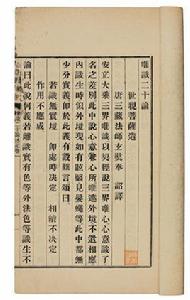 唯識二十論
世親菩薩造
唐三藏法師玄奘奉 詔譯
安立大乘三界唯識以契經說三界唯心心意識了
名之差別此中說心意兼心所唯遮外境不遣相應
內識生時似外境現如有眩瞖見髮蠅等此中都無
少分實義即於此義有設難言頌曰
若識無實境 即處時決定 相續不決定
作用不應成
論曰此說何義若離識實有色等外法色等識生不